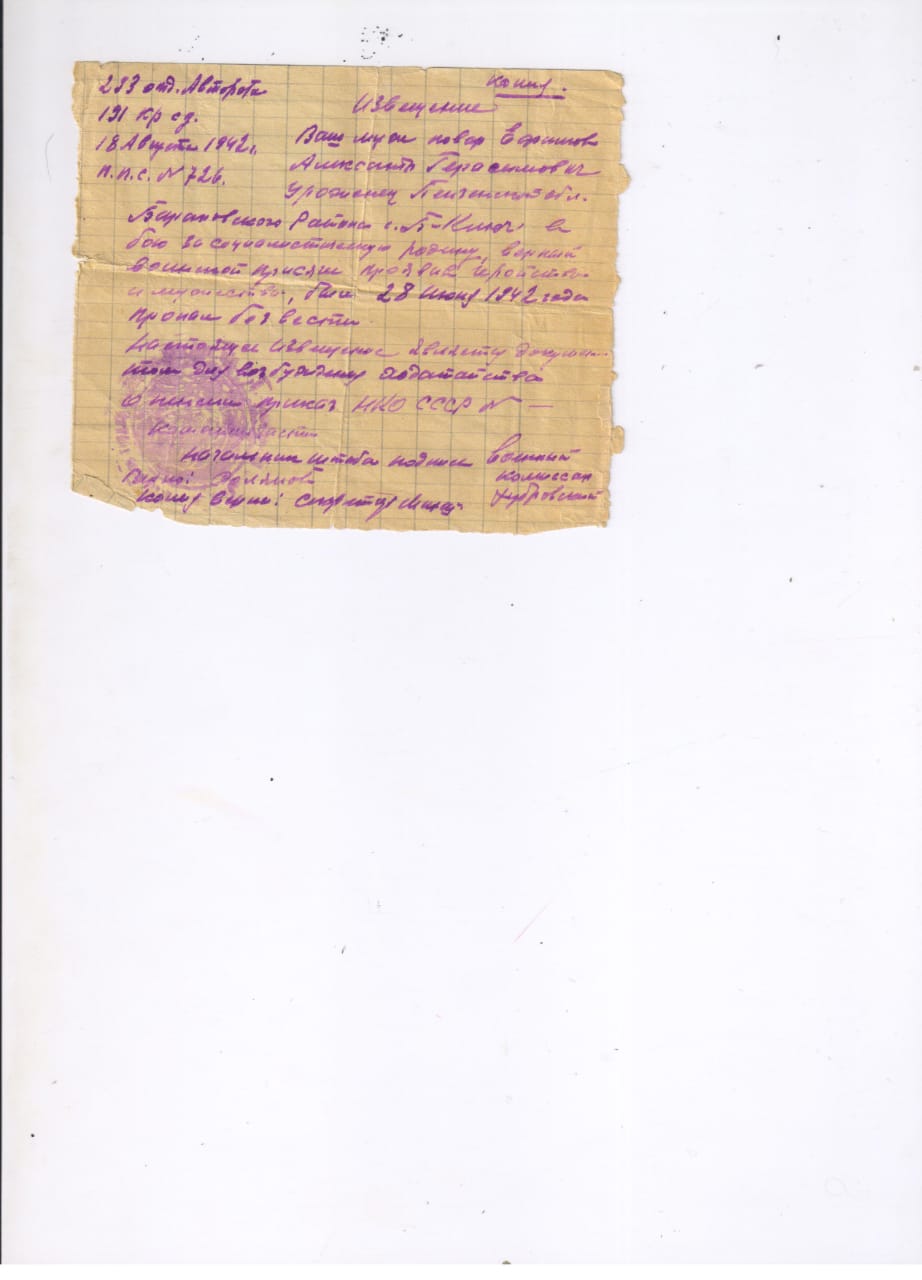 233 отд. Авторота
копия.
191 кр сд.
Извещение
18 Августа 1942 г.
п.п.с. № 726.
Ваш муж повар Ефимов
Александр Герасимович
Уроженец Пензенской обл.
Барановского Района с. Т-Ключи в
бою за социалистическую родину, верный
воинской присяге проявив геройство
и мужество, был 28 Июня 1942 года
пропал без вести.
Настоящее извещение является докумен-
том для возбуждения ходатайства
о пенсии приказ НКО СССР № —
Командир части
Начальник штаба подпись Военный
комиссар
Дубровский
Копия верна: секретарь